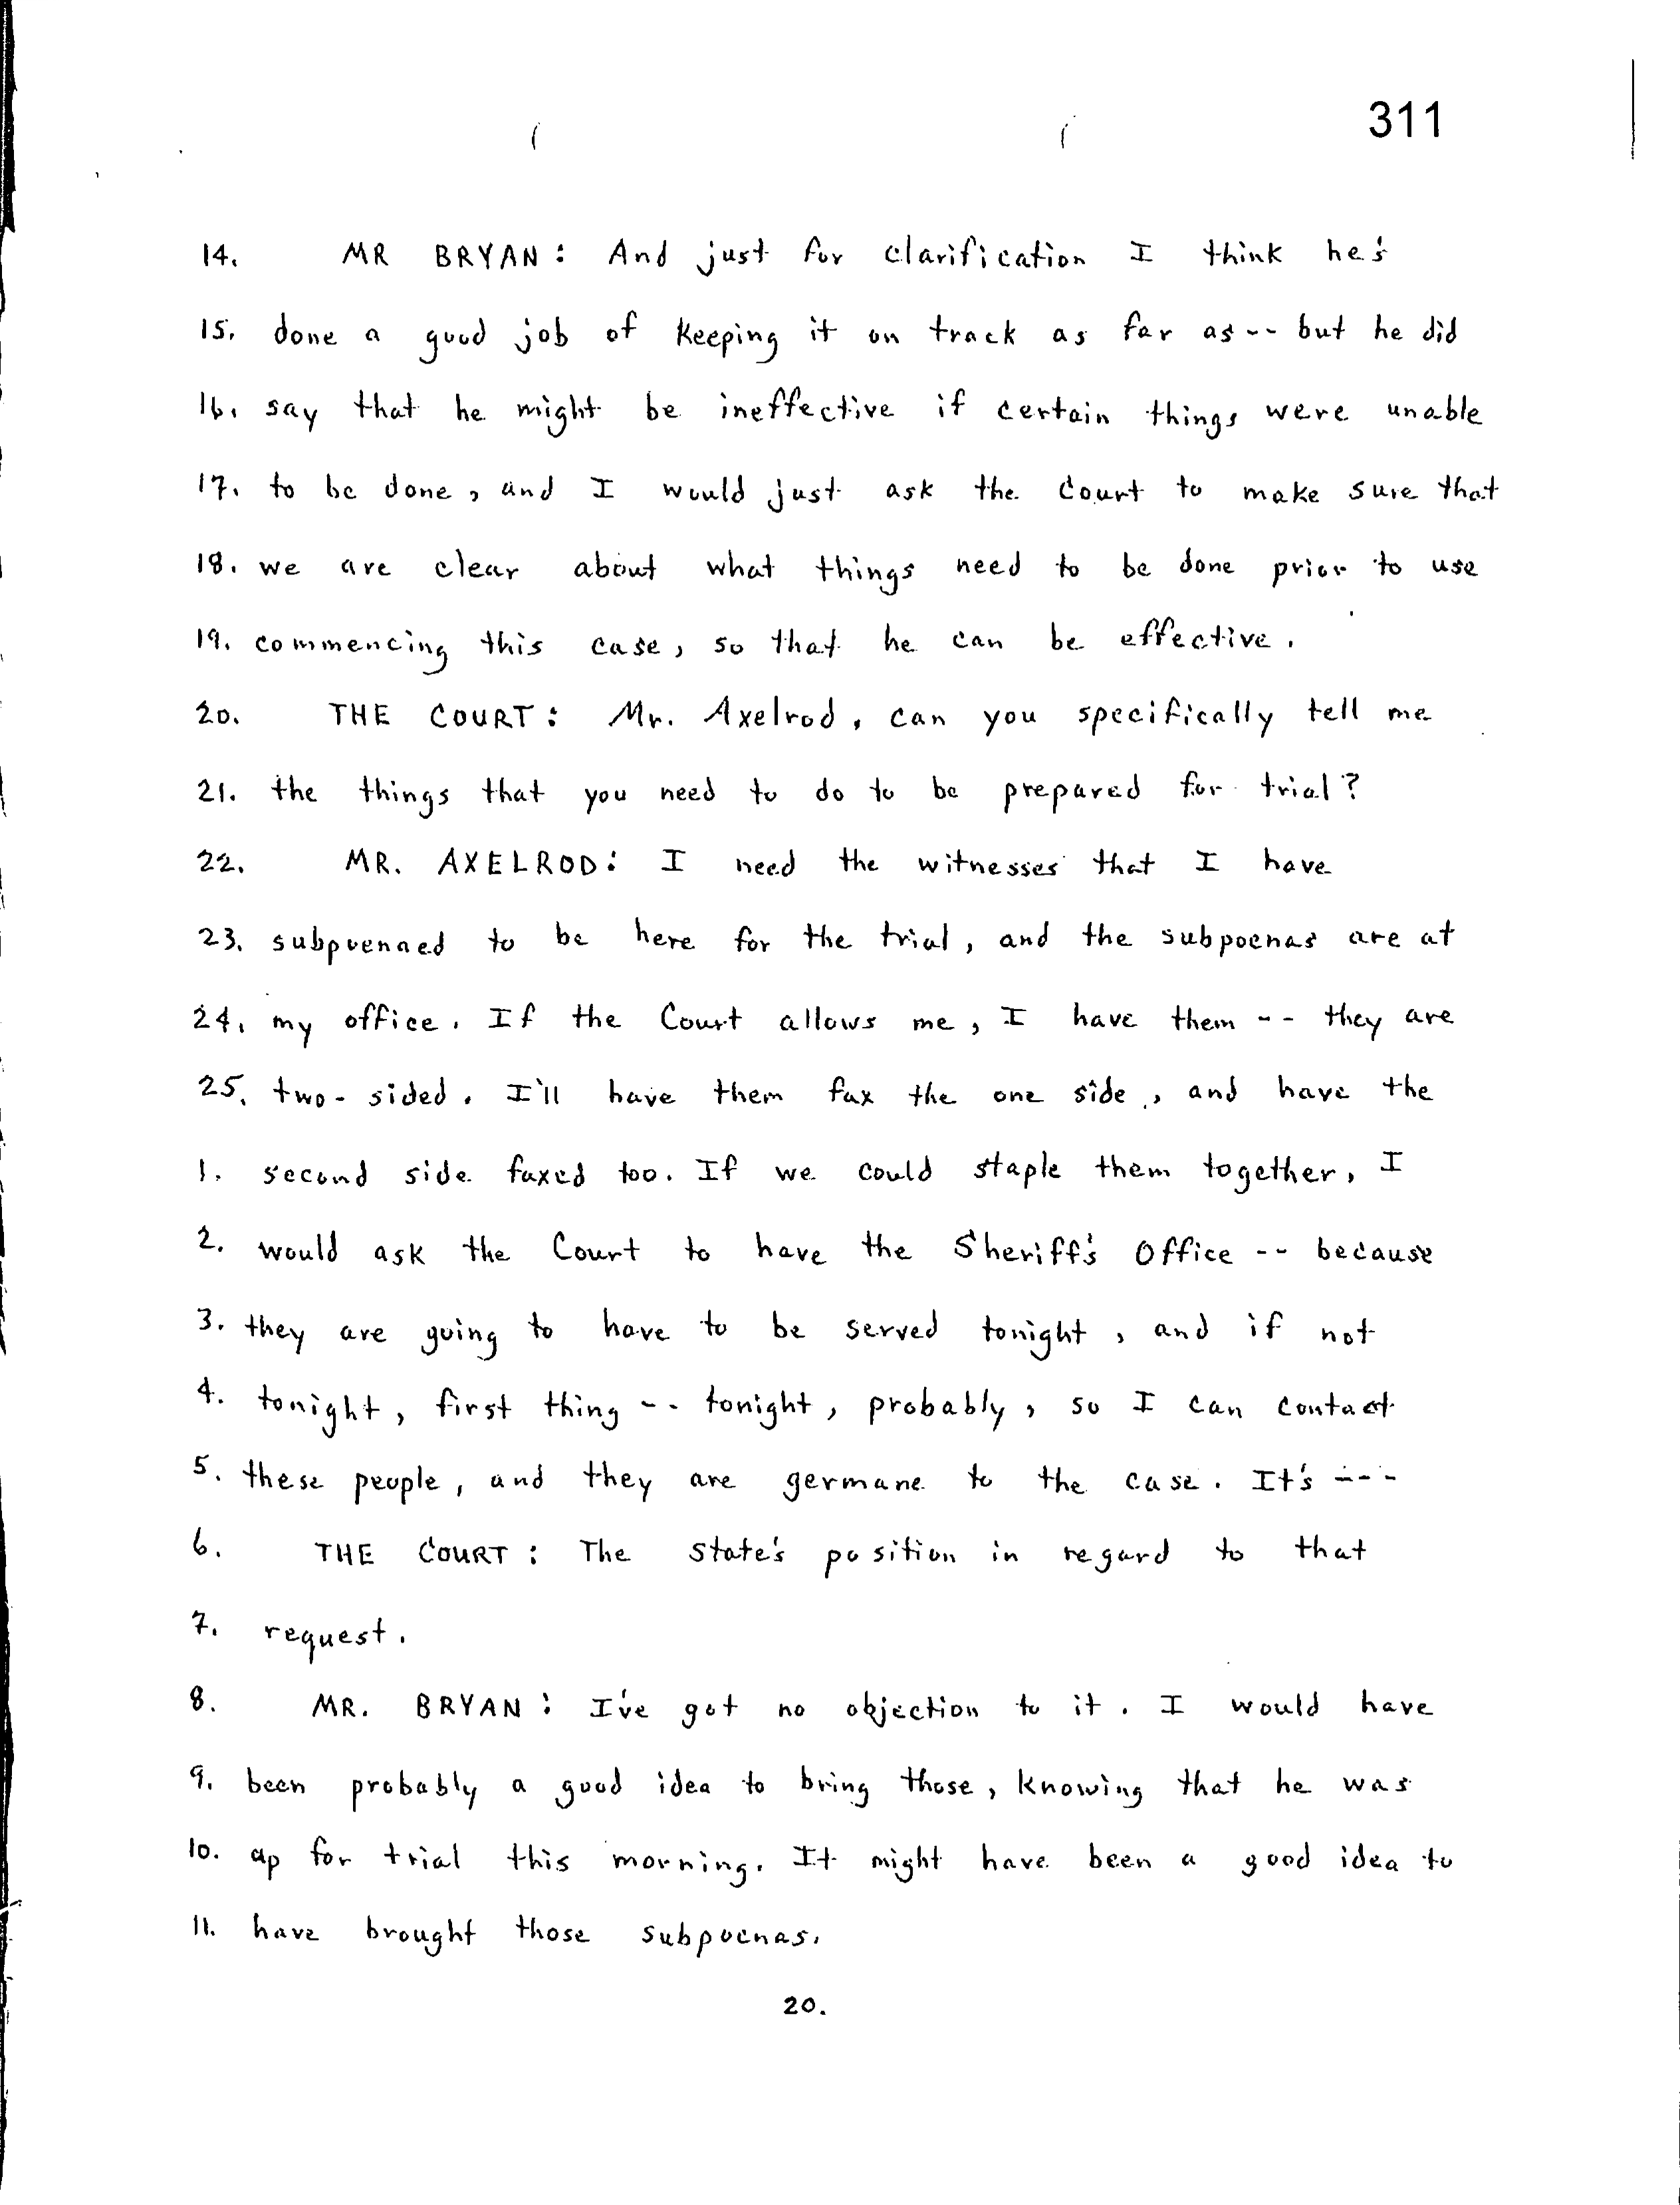 311
14. MR BRYAN: And just for clarification I think he's
15. done a good job of keeping it on track as far as -- but he did
16. say that he might be ineffective if certain things were unable
17. to be done, and I would just ask the Court to make sure that
18. we are clear about what things need to be done prior to use
19. commencing this case, so that he can be effective.
20. THE COURT: Mr. Axelrod, can you specifically tell me
21. the things that you need to do to be prepared for trial?
22. MR. AXELROD: I need the witnesses that I have
23. subpoenaed to be here for the trial, and the subpoenas are at
24. my office. If the Court allows me, I have them -- they are
25. two-sided. I'll have them fax the one side, and have the
1. second side faxed too. If we could staple them together, I
2. would ask the Court to have the Sheriff's Office -- because
3. they are going to have to be served tonight, and if not
4. tonight, first thing -- tonight, probably, so I can contact
5. these people, and they are germane to the case. It's ---
6. THE COURT: The State's position in regard to that
7. request.
8. MR. BRYAN: I've got no objection to it. I would have
9. been probably a good idea to bring those, knowing that he was
10. up for trial this morning. It might have been a good idea to
11. have brought those subpoenas.
20.